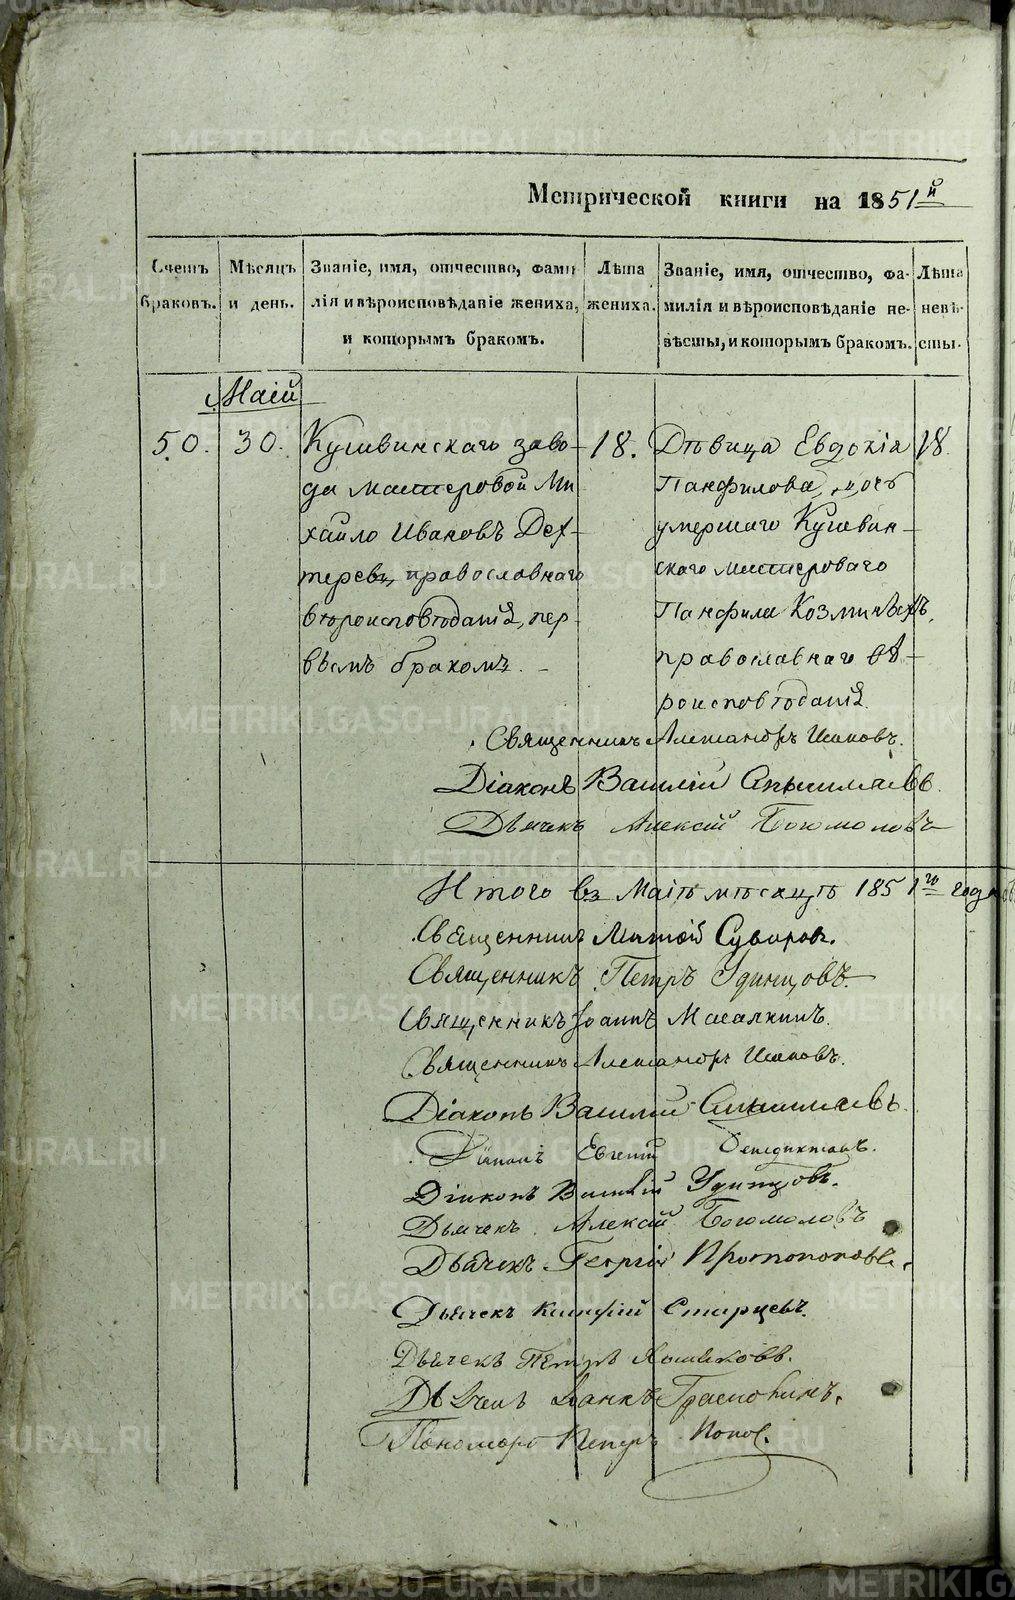 Метрической книги на 1851й
Счетъ браковъ.
Мѣсяцъ и день.
Званіе, имя, отчество, фами
лія и вѣроисповѣданіе жениха,
и которымъ бракомъ.
Лѣта жениха.
Званіе, имя, отчество, фа-
милія и вѣроисповѣданіе не-
вѣсты, и которымъ бракомъ.
Лѣта невѣ-
сты.
Маій
50. 30.
Кушвинскаго заво-
да мастеровой Ми
хайло Ивановъ Дех-
теревъ, православнаго
вѣроисповѣданія, пер-
вымъ бракомъ. -
18.
Дѣвица Евдокія
Панфилова, дочь
умершаго Кушвин-
скаго мастероваго
Панфила Козминыхъ,
православнаго вѣ-
роисповѣданія.
18.
Священникъ Александръ
Діаконъ Василій
Дьячекъ Алексій Богомоловъ
Итого въ Маіѣ мѣсяцѣ 1851го года
Священникъ Суворовъ.
Священникъ Петръ Удинцовъ.
Священникъ Іоаннъ
Священникъ Александръ
Діаконъ Василій
Діаконъ Евгеній
Діаконъ Василій Удинцовъ.
Дьячекъ Алексій Богомоловъ
Дьячекъ Георгій Протопоповъ.
Дьячекъ Старцевъ.
Дьячекъ Петръ
Дьячекъ
Пономарь Петръ Попов.
METRIKI.GASO-URAL.RU